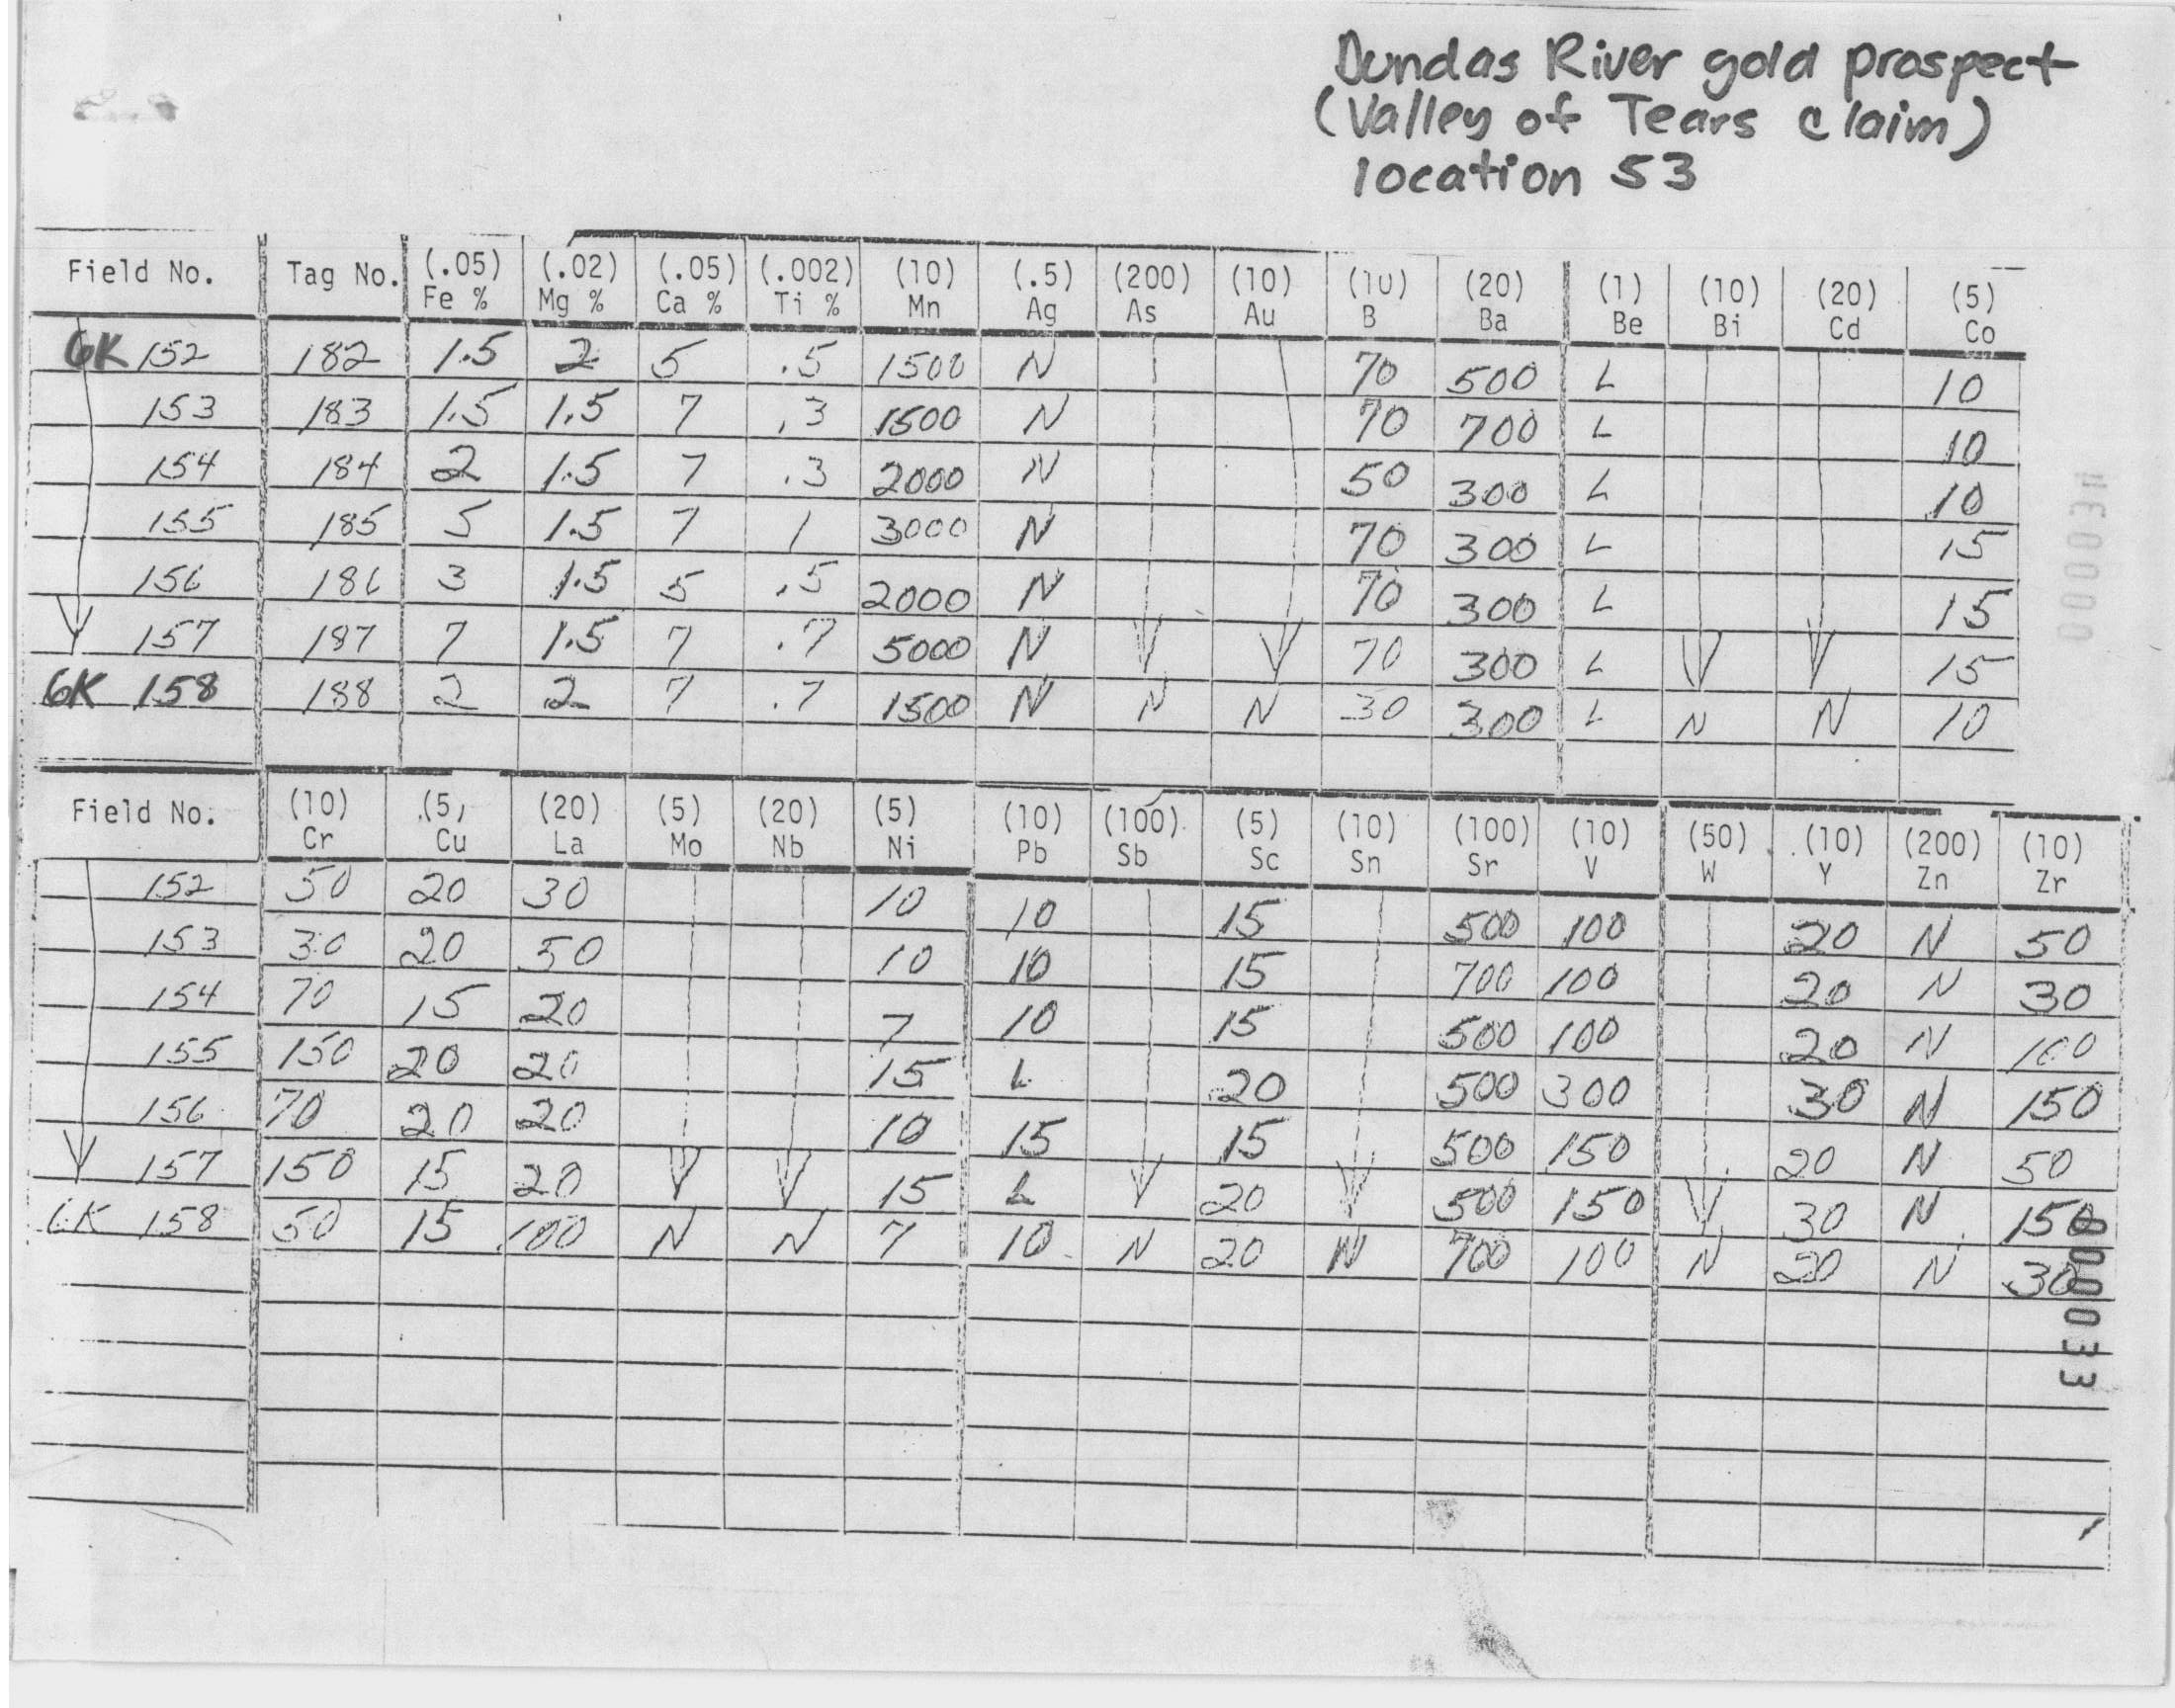 Dundas River gold prospect
(Valley of Tears claim)
location 53
Field No. Tag No. (.05) Fe % (.02) Mg % (.05) Ca % (.002) Ti % (10) Mn (.5) Ag (200) As (10) Au (10) B (20) Ba (1) Be (10) Bi (20) Cd (5) Co
6K 152 182 1.5 2 5 .5 1500 N 70 500 L 10
153 183 1.5 1.5 7 .3 1500 N 70 700 L 10
154 184 2 1.5 7 .3 2000 N 50 300 L 10
155 185 5 1.5 7 1 3000 N 70 300 L 15
156 186 3 1.5 5 .5 2000 N 70 300 L 15
157 187 7 1.5 7 .7 5000 N 70 300 L 15
6K 158 188 2 2 7 .7 1500 N N N 30 300 L N N 10
Field No. (10) Cr (5) Cu (20) La (5) Mo (20) Nb (5) Ni (10) Pb (100) Sb (5) Sc (10) Sn (100) Sr (10) V (50) W (10) Y (200) Zn (10) Zr
152 50 20 30 10 10 15 500 100 20 N 50
153 30 20 50 10 10 15 700 100 20 N 30
154 70 15 20 7 10 15 500 100 20 N 100
155 150 20 20 15 L 20 500 300 30 N 150
156 70 20 20 10 15 15 500 150 20 N 50
157 150 15 20 15 L 20 500 150 30 N 150
6K 158 50 15 100 N N 7 10 N 20 N 700 100 N 20 N 30